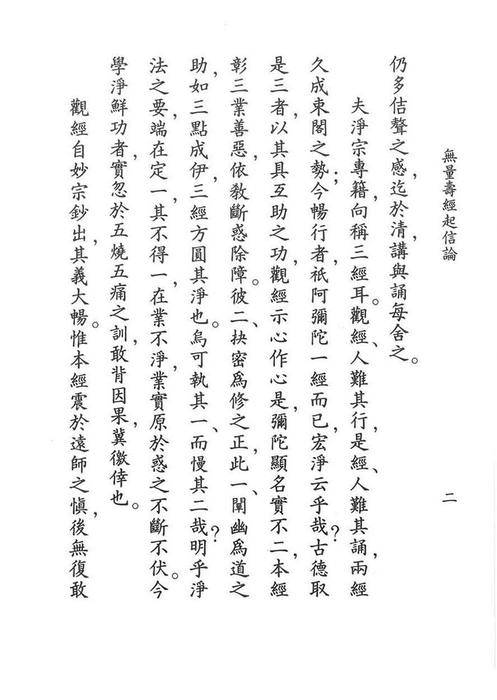 無量壽經起信論
二
仍多佶聱之感，迄於清，講與誦每舍之。
夫淨宗專籍，向稱三經耳。觀經、人難其行，是經、人難其誦，兩經
久成東閣之勢；今暢行者，祇阿彌陀一經而已，宏淨云乎哉？古德取
是三者，以其具互助之功，觀經示心作心是，彌陀顯名實不二，本經
彰三業善惡，依教斷惑除障。彼二、抉密為修之正，此一、闡幽為道之
助，如三點成伊，三經方圓其淨也。烏可執其一、而慢其二哉？明乎淨
法之要，端在定一，其不得一，在業不淨，業實原於惑之不斷不伏。今
學淨鮮功者，實忽於五燒五痛之訓，敢背因果，冀徼倖也。
觀經自妙宗鈔出，其義大暢。惟本經震於遠師之慎，後無復敢